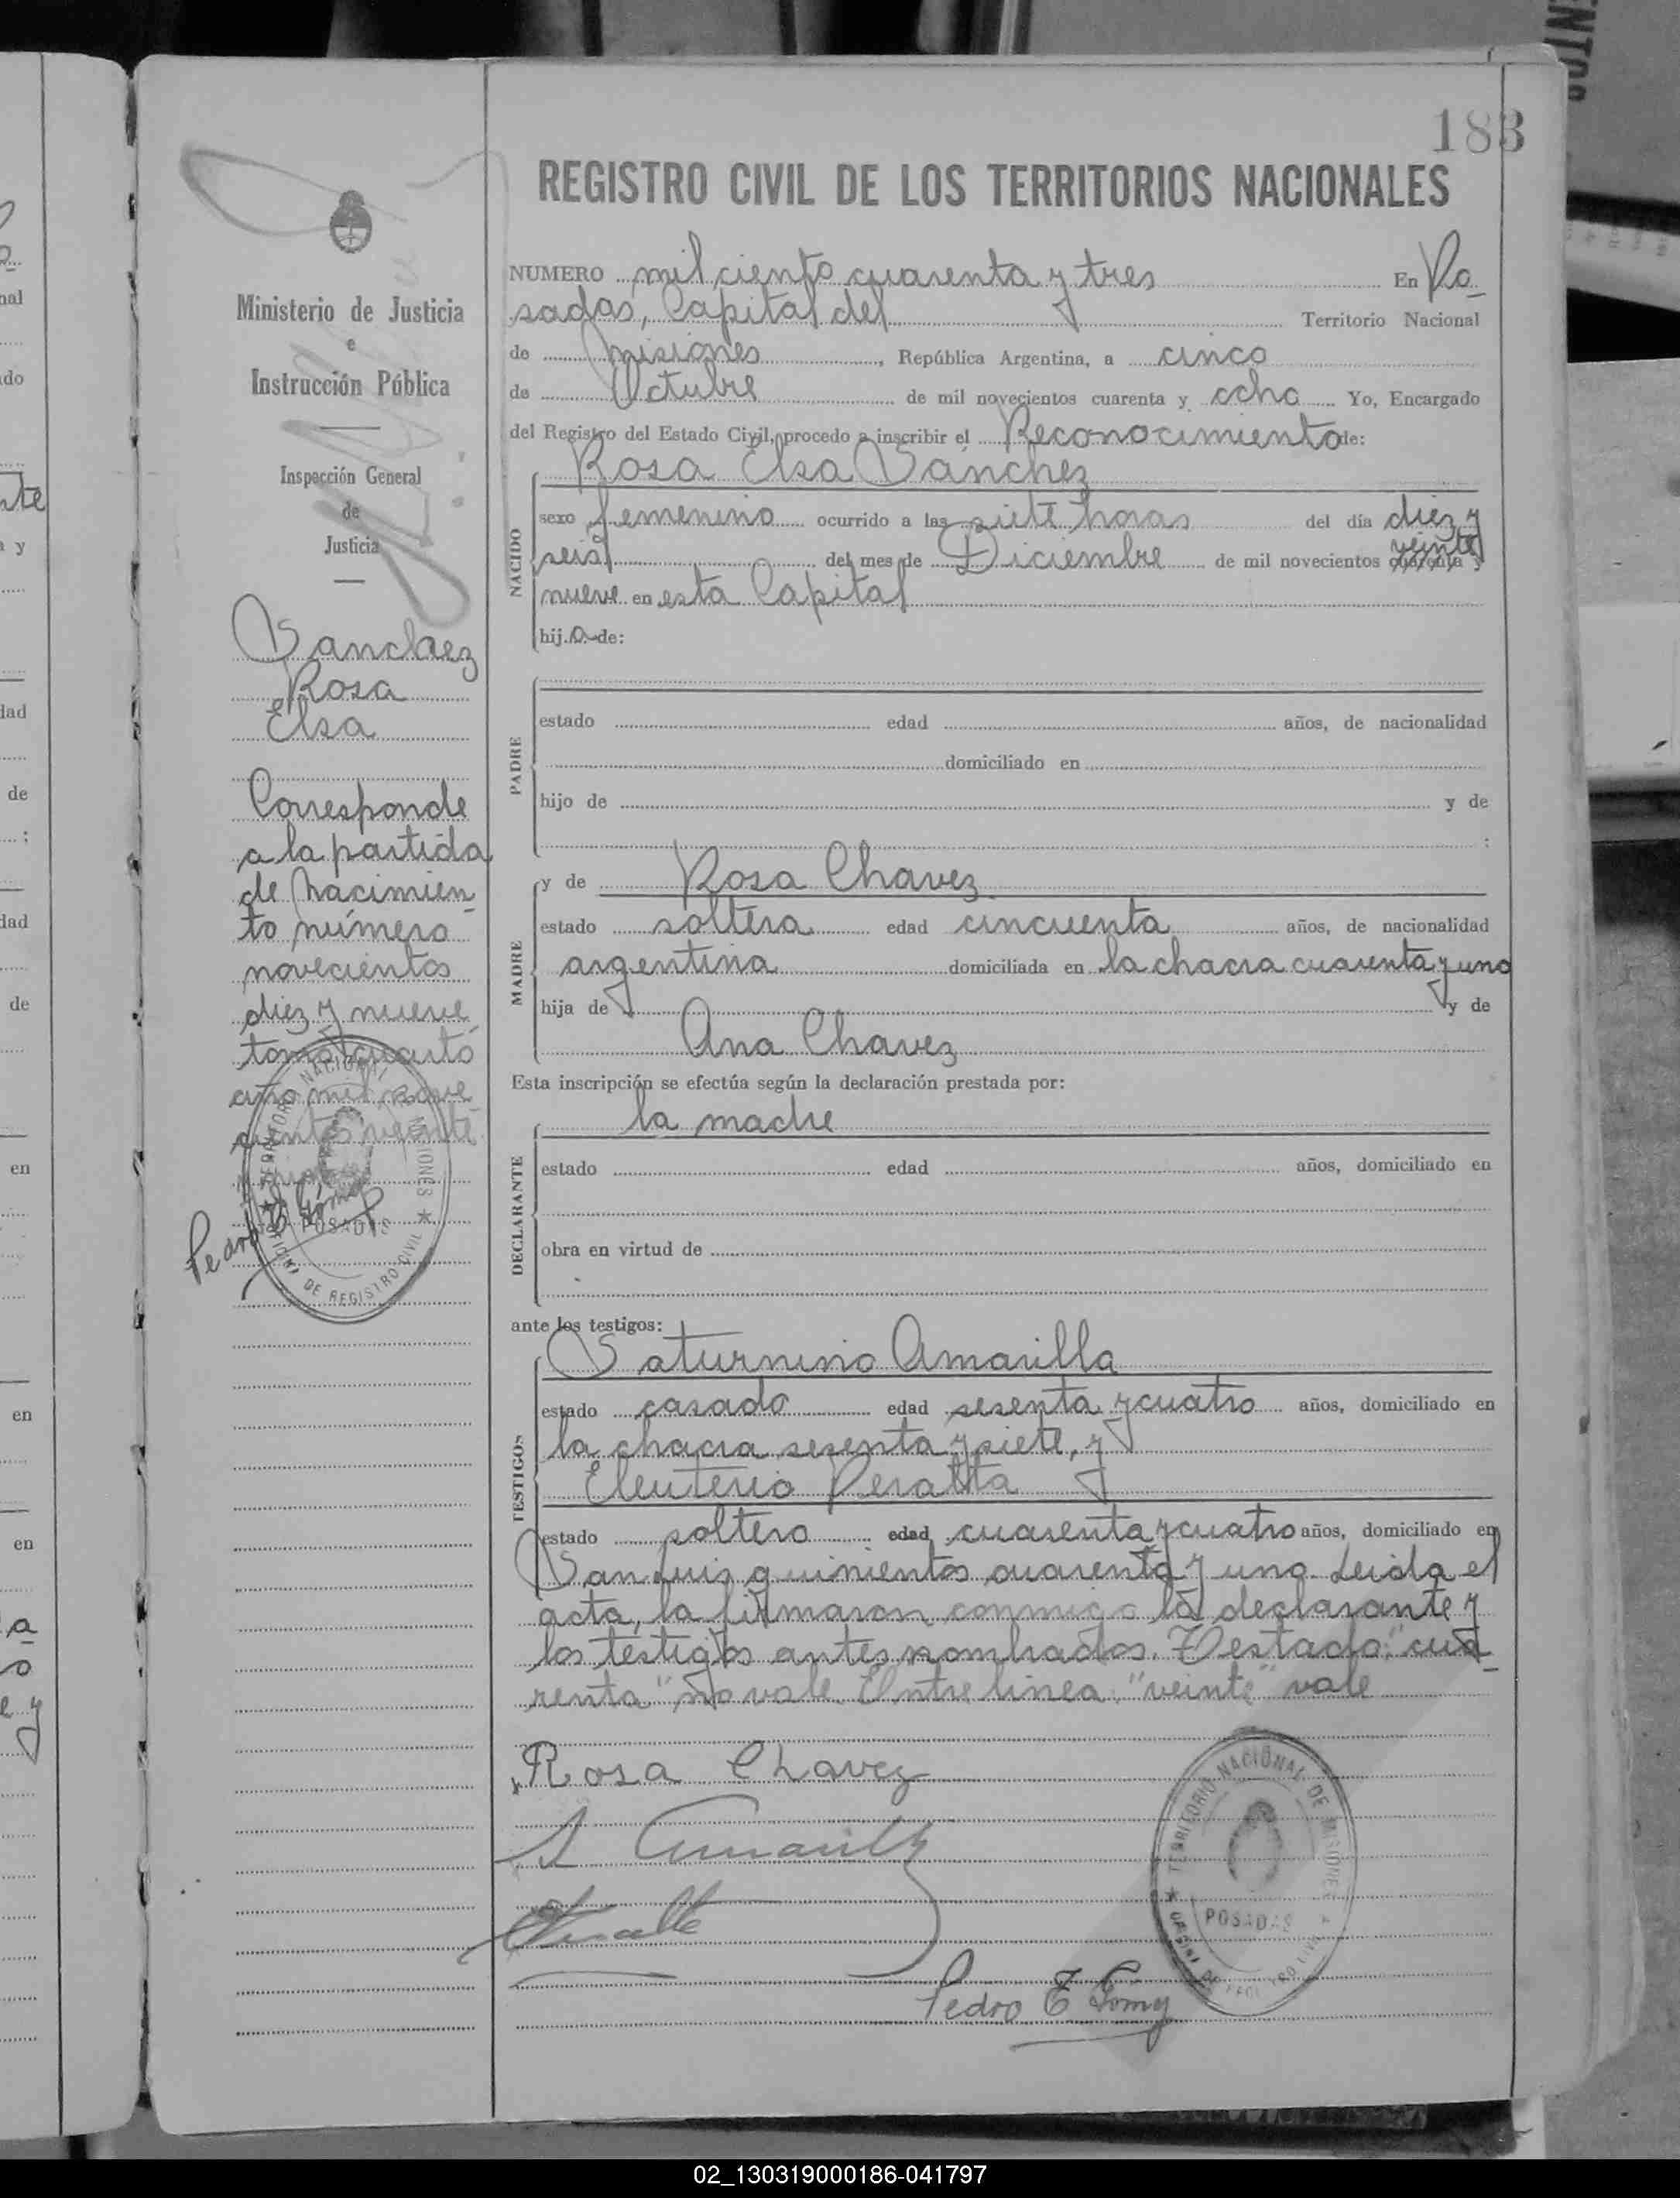 183
REGISTRO CIVIL DE LOS TERRITORIOS NACIONALES
NUMERO mil ciento cuarenta y tres En Po-
sadas, Capital del Territorio Nacional
de Misiones, República Argentina, a cinco
de Octubre de mil novecientos cuarenta y ocho Yo, Encargado
del Registro del Estado Civil, procedo a inscribir el Reconocimiento de:
NACIDO
Rosa Elsa Sánchez
sexo femenino ocurrido a las siete horas del día diez y
seis del mes de Diciembre de mil novecientos cuarenta veinte y
nueve en esta Capital
hija de:
PADRE
estado edad años, de nacionalidad
domiciliado en
hijo de y de
:
MADRE
y de Rosa Chavez
estado soltera edad cincuenta años, de nacionalidad
argentina domiciliada en la chacra cuarenta y uno
hija de y de
Ana Chavez
Esta inscripción se efectúa según la declaración prestada por:
DECLARANTE
la madre
estado edad años, domiciliado en
obra en virtud de
ante los testigos:
TESTIGOS
Saturnino Amarilla
estado casado edad sesenta y cuatro años, domiciliado en
la chacra sesenta y siete, y
Eleuterio Peralta
estado soltero edad cuarenta y cuatro años, domiciliado en
San Luis quinientos cuarenta y uno. Leida el
acta, la firmaron conmigo la declarante y
los testigos antes nombrados. Testado: "cua-
renta" no vale. Entre linea: "veinte" vale
Rosa Chavez
S Amarilla
Pedro T Gómez
TERRITORIO NACIONAL DE MISIONES
POSADAS
OFICINA DE REGISTRO CIVIL
Ministerio de Justicia
e
Instrucción Pública
Inspección General
de
Justicia
Sanchez
Rosa
Elsa
Corresponde
a la partida
de Nacimien-
to número
novecientos
diez y nueve
tomo cuarto
año mil nove-
cientos veinte
Pedro T Gómez
TERRITORIO NACIONAL MISIONES
POSADAS
OFICINA DE REGISTRO CIVIL
02_130319000186-041797